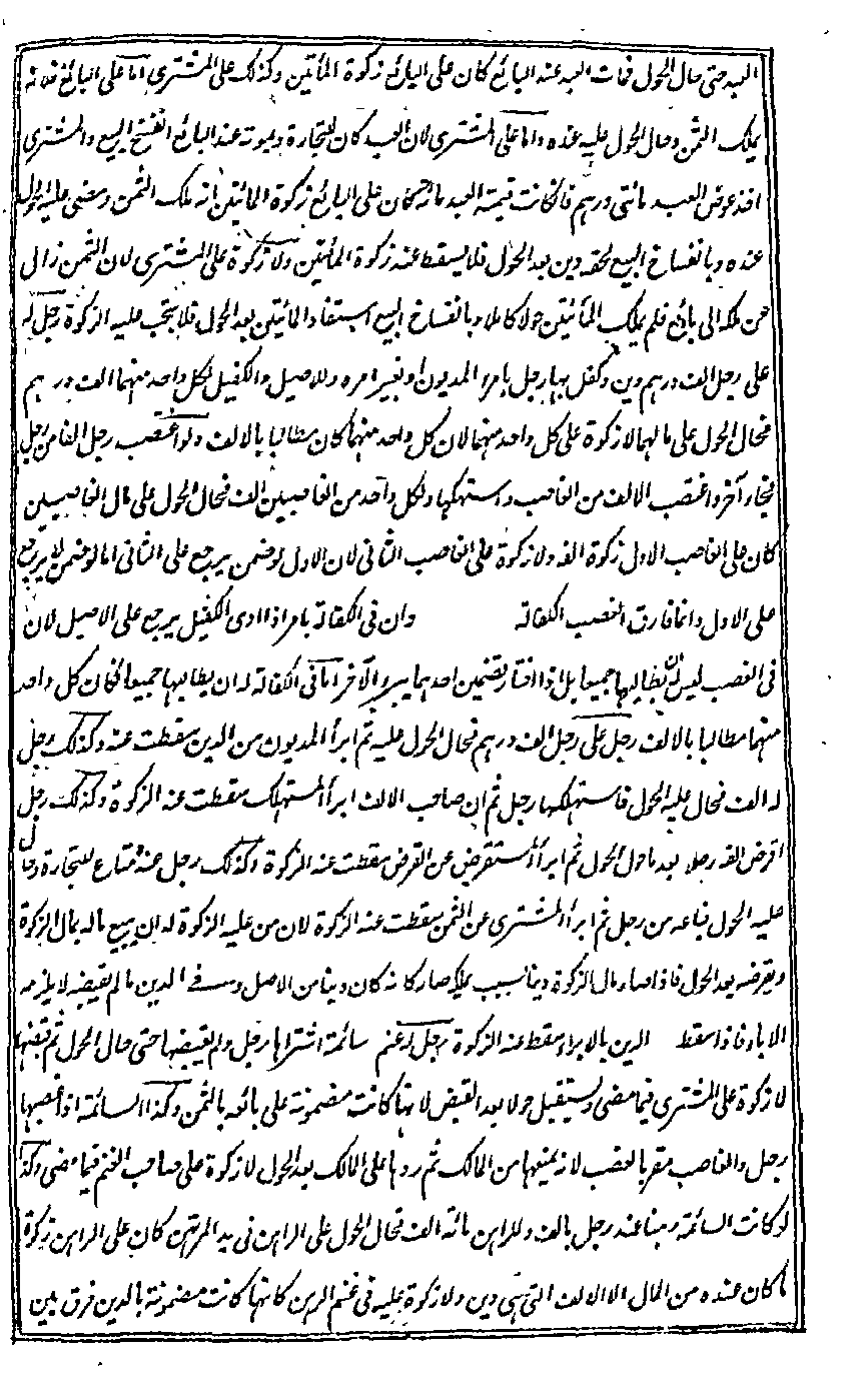 العبد حتى حال الحول فمات العبد عند البائع كان على البائع زكوة المأتين وكذلك على المشترى اما على البائع فلانه
يملك الثمن وحال الحول عليه عنده واما على المشترى لان العبد كان للتجارة وبموته عند البائع انفسخ البيع والمشترى
اخذ عوض العبد مائتى درهم فان كانت قيمة العبد مائة كان على البائع زكوة المائتين لانه ملك الثمن ومضى عليه الحول
عنده وبانفساخ البيع لحقه دين بعد الحول فلا يسقط عنه زكوة المأتين ولا زكوة على المشترى لان الثمن زال
عن ملكه الى بائع فلم يملك المأتين حولا كاملا وبانفساخ البيع استفاد المائتين بعد الحول فلا يجب عليه الزكوة رجل له
على رجل الف درهم دين وكفل بها رجل بامر المديون او بغير امره وللاصيل والكفيل لكل واحد منهما الف درهم
فحال الحول على مالهما لا زكوة على كل واحد منهما لان كل واحد منهما كان مطالبا بالالف ولو اغتصب رجل الفا من رجل
فجاء آخر واغتصب الالف من الغاصب واستهلكها ولكل واحد من الغاصبين الف فحال الحول على مال الغاصبين
كان على الغاصب الاول زكوة الفه ولا زكوة على الغاصب الثانى لان الاول لو ضمن يرجع على الثانى اما لو ضمن لا يرجع
على الاول وانما فارق الغصب الكفالة وان فى الكفالة بامر اذا ادى الكفيل يرجع على الاصيل لان
فى الغصب ليس له ان يطالبهما جميعا بل اذا اختار تضمين احدهما يبرء الآخر اما فى الكفالة له ان يطالبهما جميعا فكان كل واحد
منهما مطالبا بالالف رجل على رجل الف درهم فحال الحول عليه ثم ابرأ المديون من الدين سقطت عنه وكذلك رجل
له الف فحال عليه الحول فاستهلكها رجل ثم ان صاحب الالف ابرأ المستهلك سقطت عنه الزكوة وكذلك رجل
اقرض الفه رجلا بعد ما حال الحول ثم ابرأ المستقرض عن القرض سقطت عنه الزكوة وكذلك رجل عنده متاع للتجارة وحال
عليه الحول فباعه من رجل ثم ابرأ المشترى عن الثمن سقطت عنه الزكوة لان من عليه الزكوة له ان يبيع ماله بمال الزكوة
ويقرضه بعد الحول فاذا صار مال الزكوة دينا بسبب يملكه صار كانه كان دينا من الاصل وسفى الدين ما لم يقبضه لا يلزمه
الاداء فاذا سقط الدين بالابراء سقط عنه الزكوة رجل له غنم سائمة اشتراها رجل ولم يقبضها حتى حال الحول ثم قبضها
لا زكوة على المشترى فيما مضى ويستقبل حولا بعد القبض لانها كانت مضمونة على بائعه بالثمن وكذا السائمة اذا غصبها
رجل والغاصب مقر بالغصب لانه يمنعها من المالك ثم ردها على المالك بعد الحول لا زكوة على صاحب الغنم فيما مضى وكذا
لو كانت السائمة رهنا عند رجل بالف وللراهن مائة الف فحال الحول على الراهن فى يد المرتهن كان على الراهن زكوة
ما كان عنده من المال الا الالف التى هى دين ولا زكوة عليه فى غنم الرهن كانها كانت مضمونة بالدين فرق بين